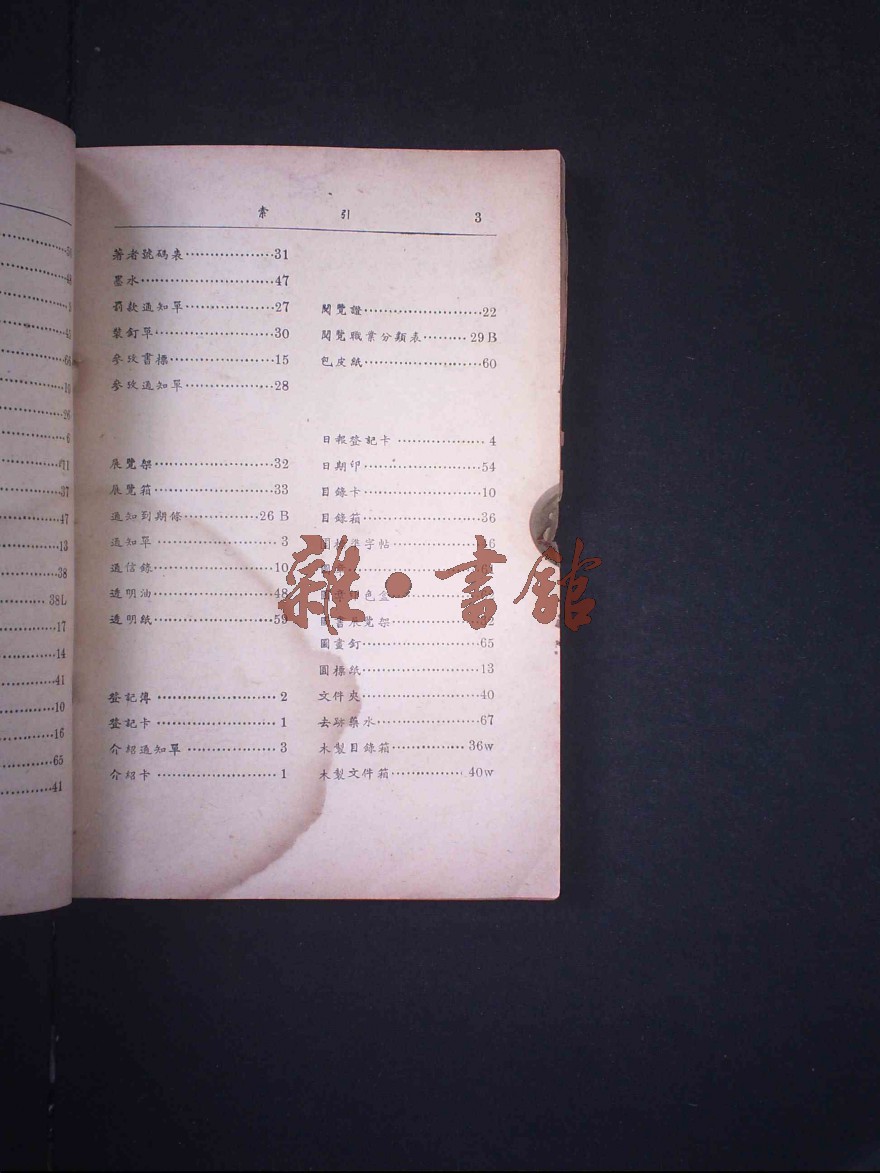 索引 3
著者號碼表 31
墨水 47
罰款通知單 27
裝釘單 30
參攷書標 15
參攷通知單 28
展覽架 32
展覽箱 33
通知到期條 26 B
通知單 3
通信錄 10
透明油 48
透明紙 59
登記簿 2
登記卡 1
介紹通知單 3
介紹卡 1
閱覽證 22
閱覽職業分類表 29 B
包皮紙 60
日報登記卡 4
日期印 54
目錄卡 10
目錄箱 36
字帖
色盒
圖書展覽架
圖畫釘 65
圖標紙 13
文件夾 40
去跡藥水 67
木製目錄箱 36w
木製文件箱 40w
雜·書館
48
43
10
26
6
71
37
47
13
38
38L
17
14
41
10
16
65
41